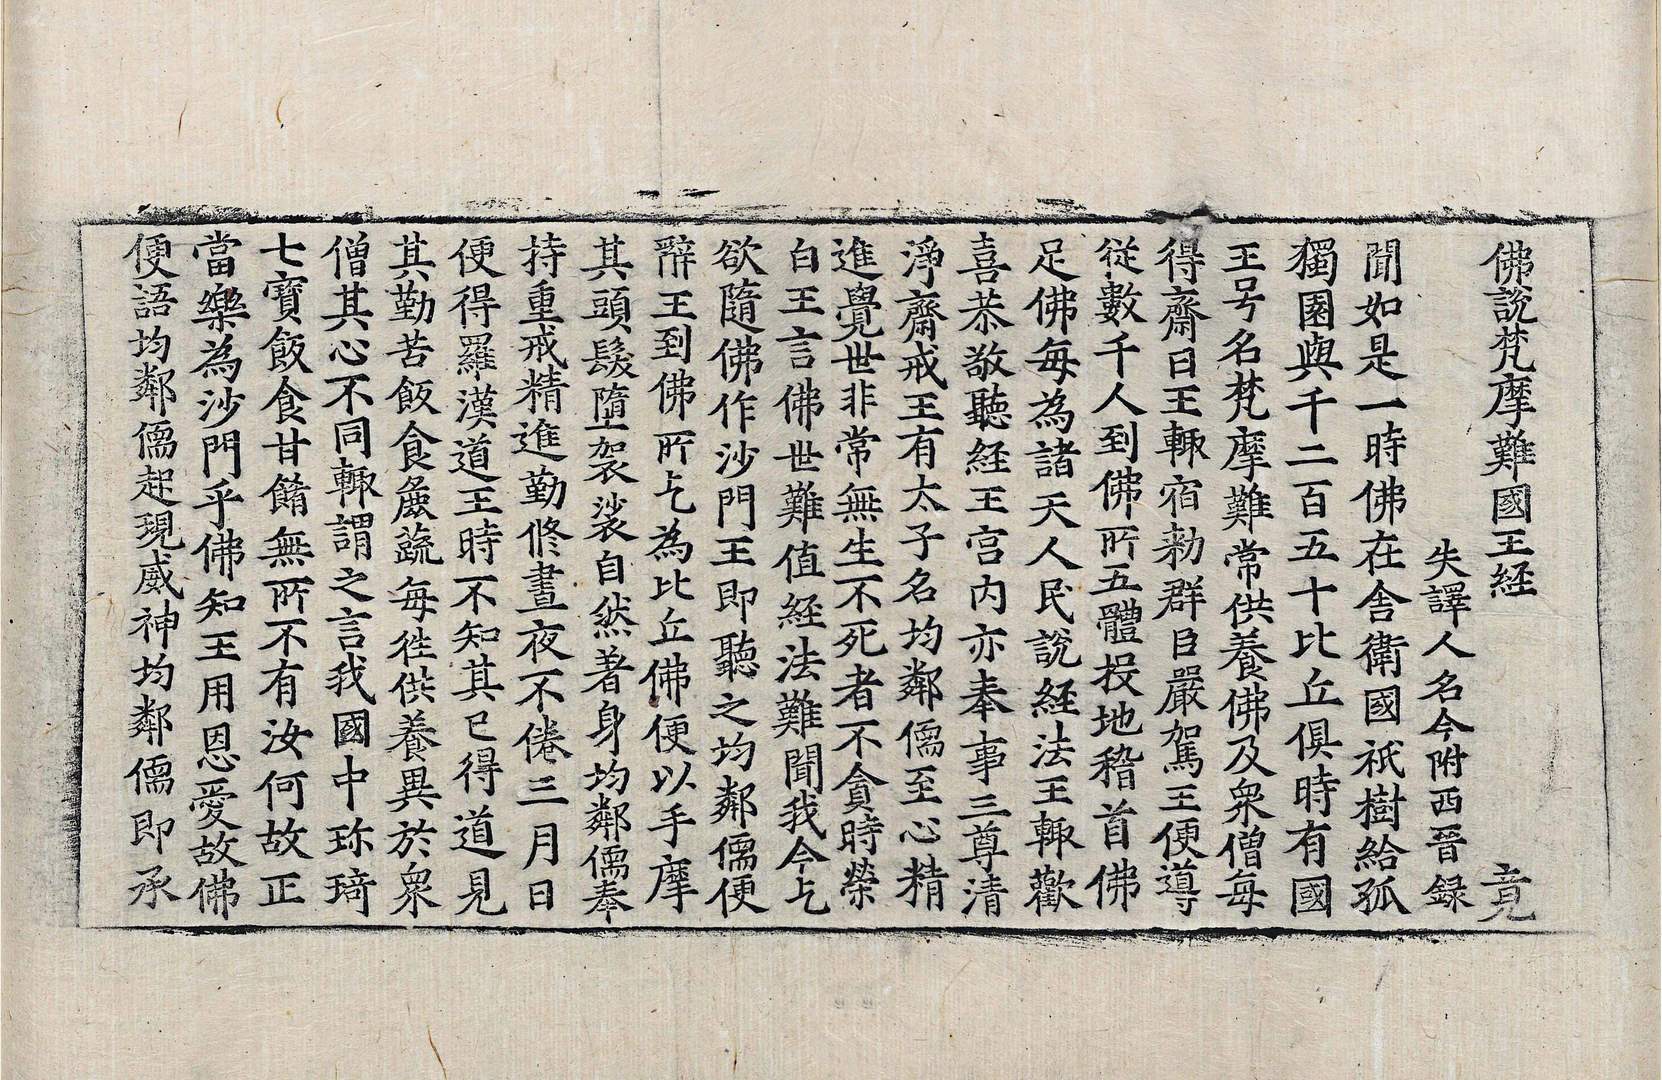 佛說梵摩難國王経 竟
失譯人名今附西晉録
聞如是一時佛在舎衛國祇樹給孤
獨園與千二百五十比丘俱時有國
王号名梵摩難常供養佛及衆僧每
得齋日王輙宿勑群臣嚴駕王便導
従數千人到佛所五體投地稽首佛
足佛每為諸天人民說経法王輙歡
喜恭敬聽経王宫内亦奉事三尊清
淨齋戒王有太子名均鄰儒至心精
進覺世非常無生不死者不貪時榮
白王言佛世難值経法難聞我今乞
欲隨佛作沙門王即聽之均鄰儒便
辭王到佛所乞為比丘佛便以手摩
其頭髮墮袈裟自然著身均鄰儒奉
持重戒精進勤修晝夜不倦三月日
便得羅漢道王時不知其已得道見
其勤苦飯食麁蔬每徃供養異於衆
僧其心不同輙謂之言我國中珎琦
七寳飯食甘餚無所不有汝何故正
當樂為沙門乎佛知王用恩愛故佛
便語均鄰儒起現威神均鄰儒即承